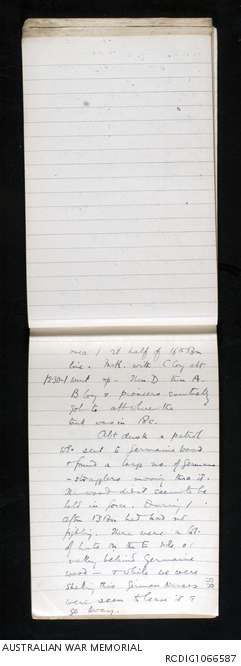 over / rt half of 16th Bn
line. McK. with C Coy abt
12.30-1 went up. Then D then A.
B Coy & pioneers eventually
got to at where the
tank was in Rc.
At dusk a patrol
was sent to Germaine wood
& found a large no. of Germans
- stragglers moving thro it.
The wood didn't seem to be
held in force. During /
after 13 Bn had had no
fighting. There were a lot
of huts on the E side of
valley behind Germaine
wood - & while we were
shelling this German nurses
were seen to leave it &
go away.
AUSTRALIAN WAR MEMORIAL
RCDIG1066587